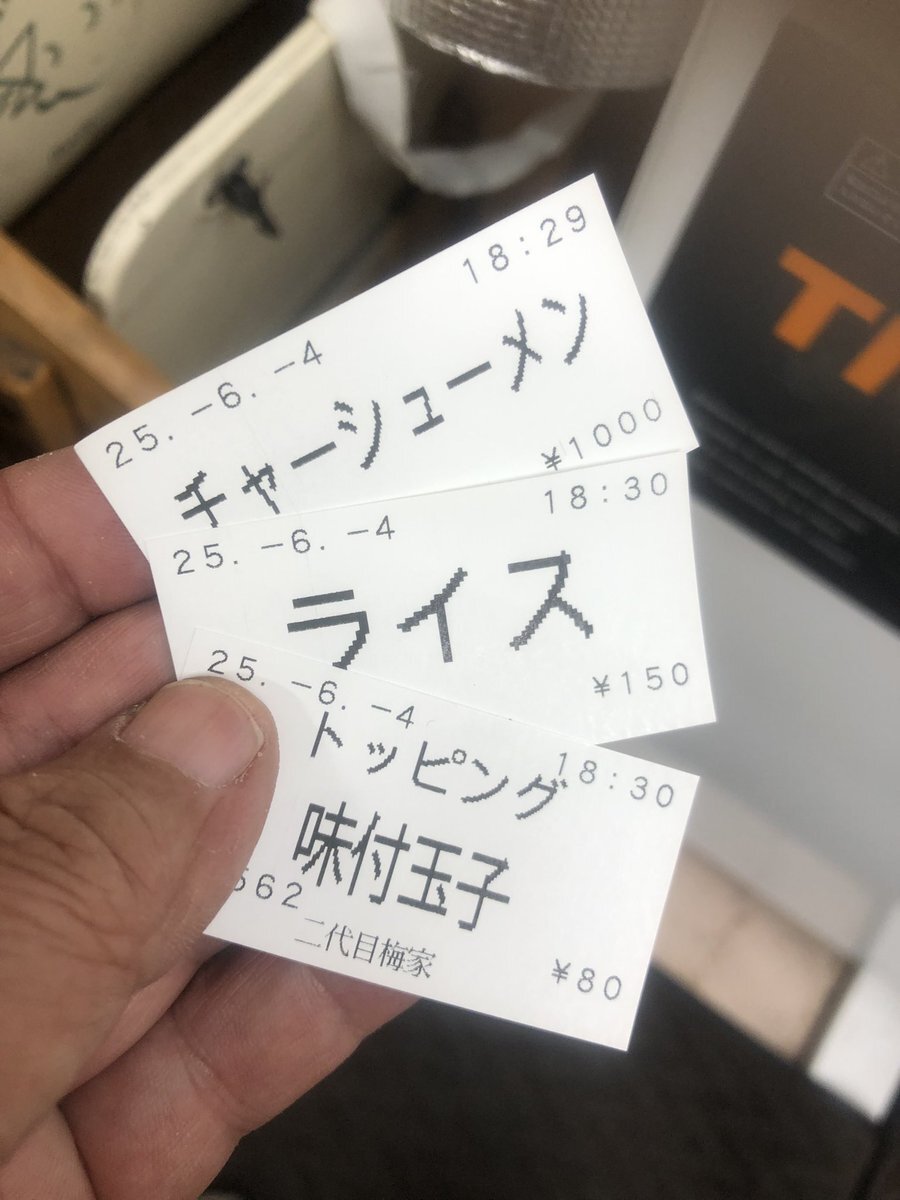 25.-6.-4 18:29
チャーシューメン
¥1000
25.-6.-4 18:30
ライス
¥150
25.-6.-4 18:30
トッピング
味付玉子
562
二代目梅家
¥80